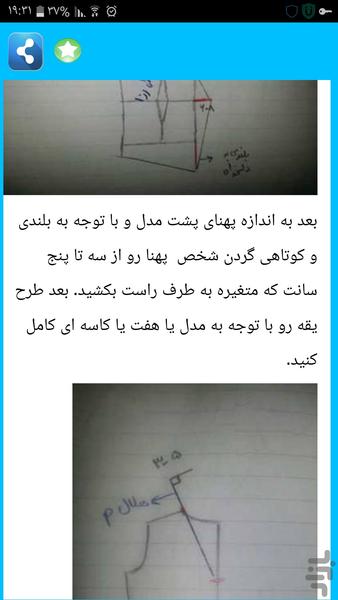 ۱۹:۳۱ ۳۷%
رزا
۶-۸
بعد به اندازه پهنای پشت مدل و با توجه به بلندی
و کوتاهی گردن شخص پهنا رو از سه تا پنج
سانت که متغیره به طرف راست بکشید. بعد طرح
یقه رو با توجه به مدل یا هفت یا کاسه ای کامل
کنید.
۳-۵
هلال م
بازار